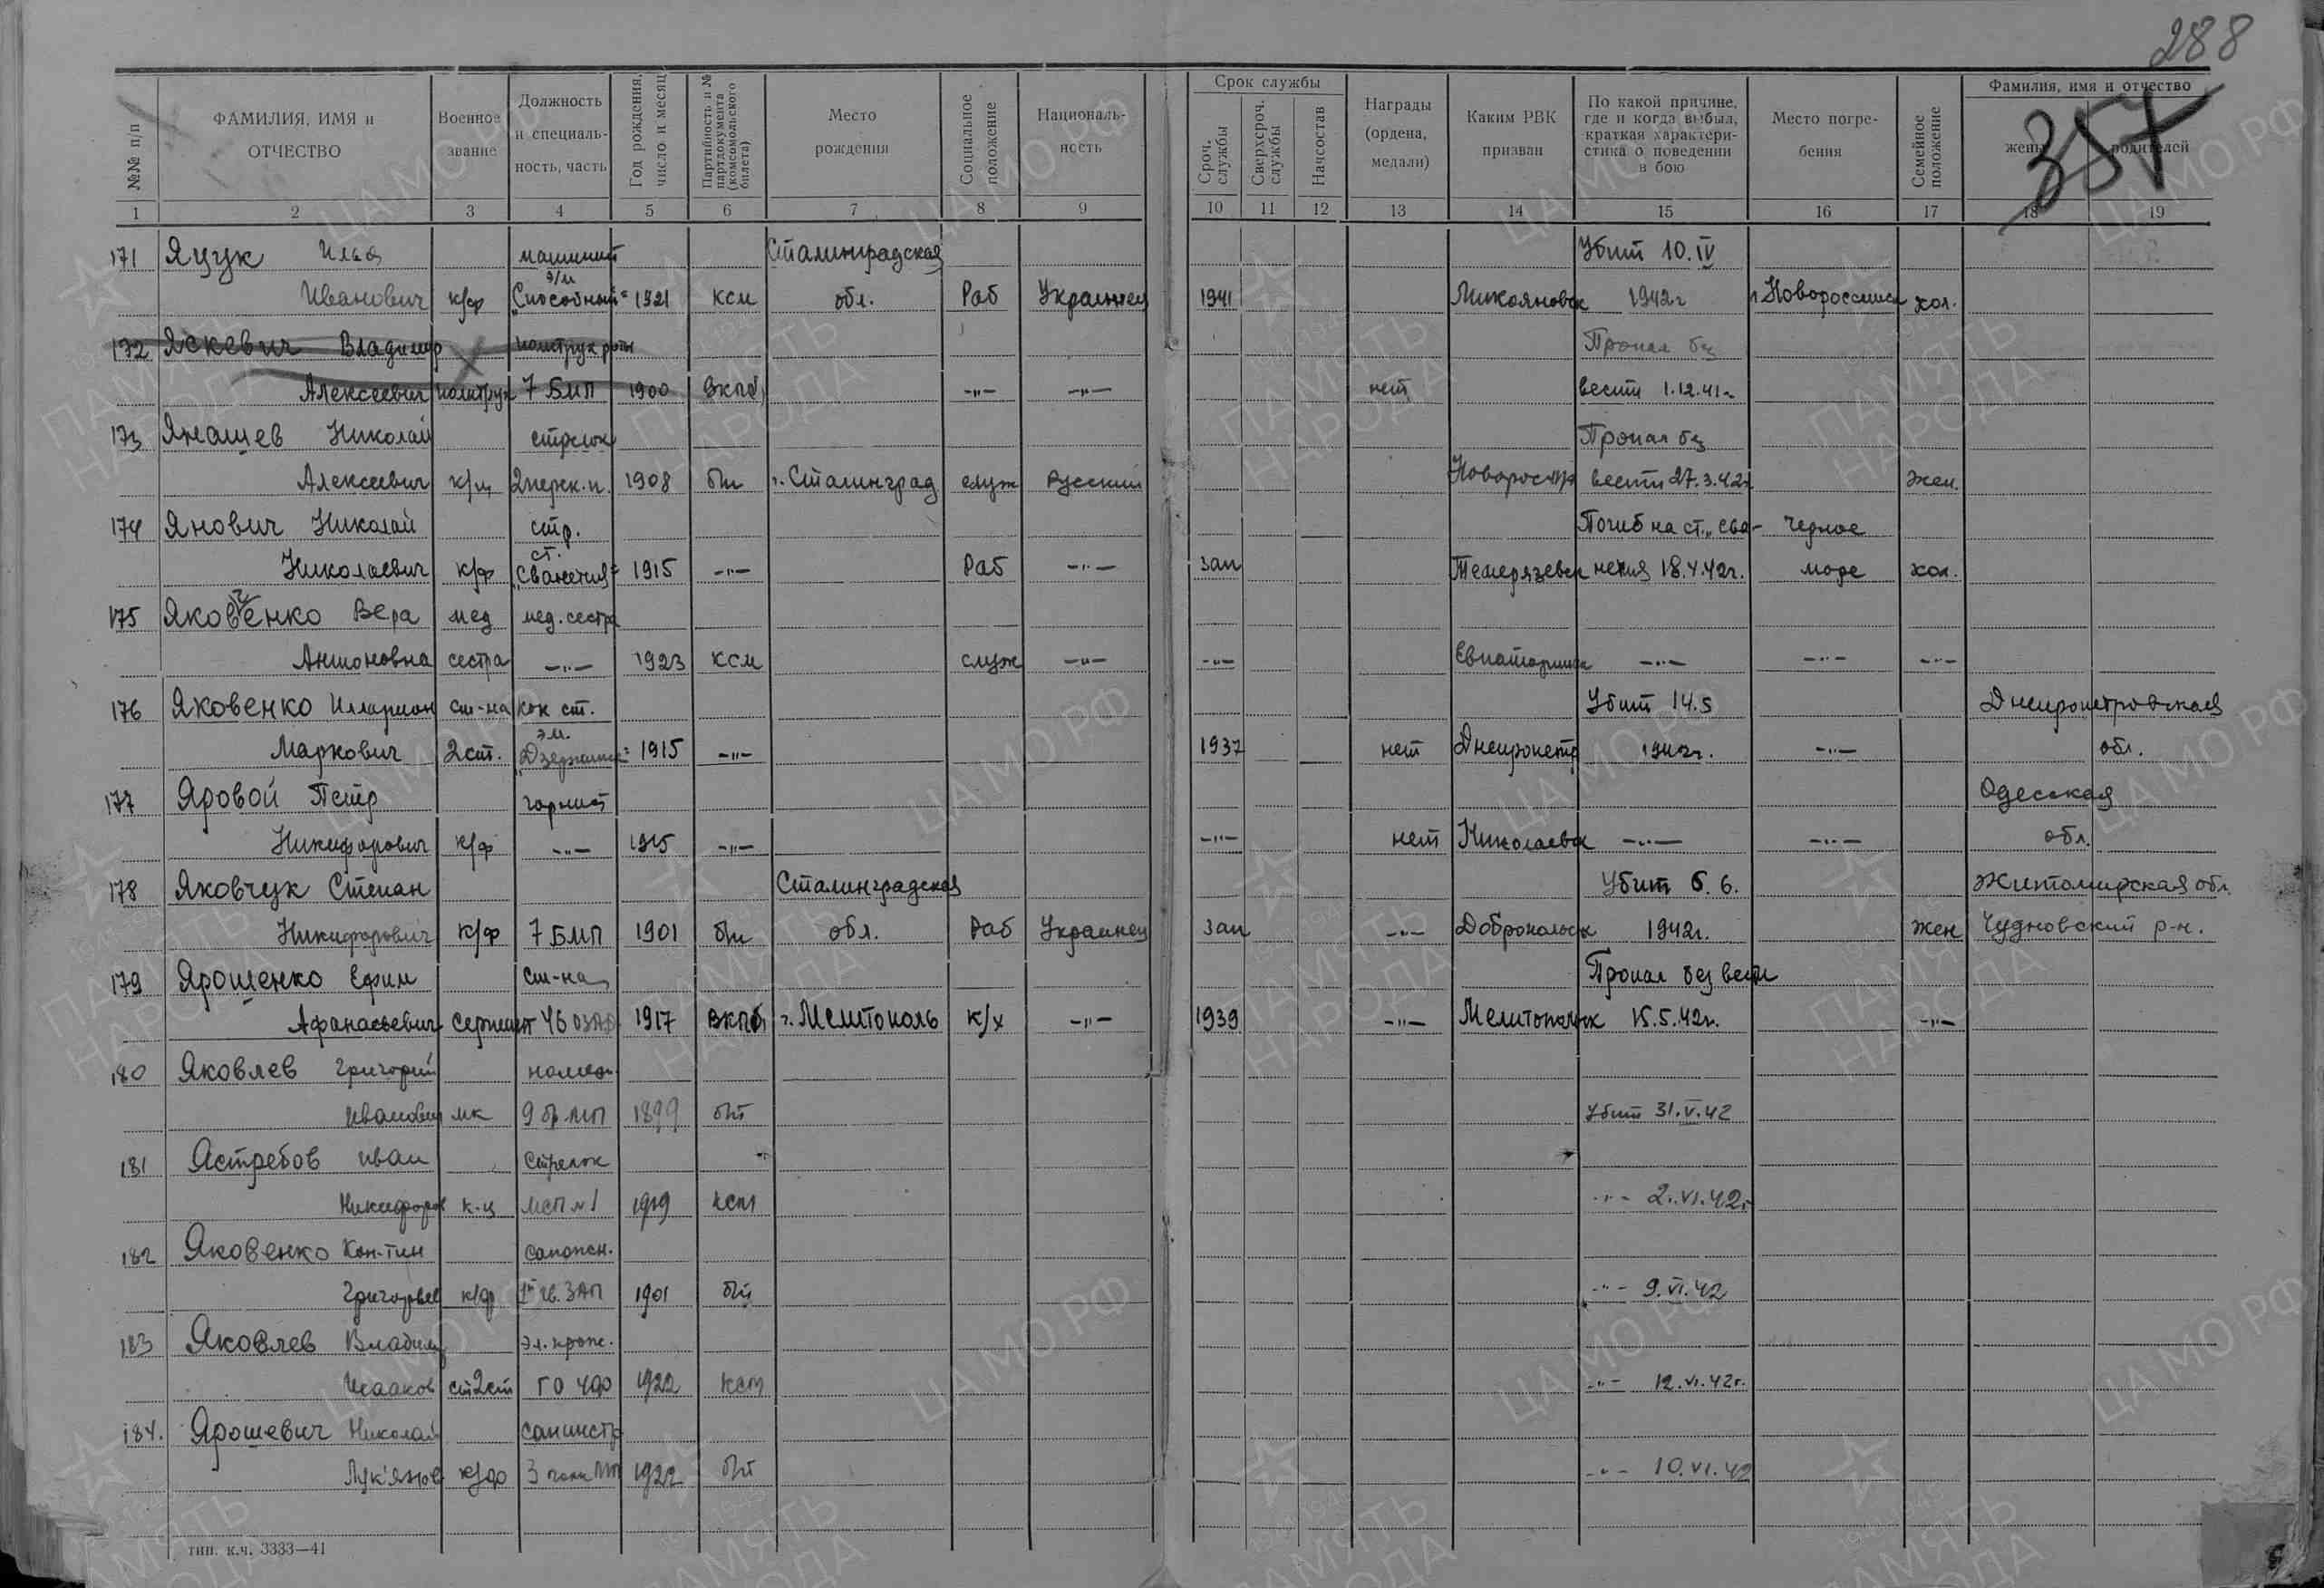 288
357
№№ п/п
ФАМИЛИЯ, ИМЯ и ОТЧЕСТВО
Военное звание
Должность и специаль-ность, часть
Год рождения, число и месяц
Партийность и № партдокумента (комсомольского билета)
Место рождения
Социальное положение
Националь-ность
Срок службы
Сроч. службы
Сверхсроч. службы
Начсостав
Награды (ордена, медали)
Каким РВК призван
По какой причине, где и когда выбыл, краткая характери-стика о поведении в бою
Место погре-бения
Семейное положение
Фамилия, имя и отчество
жены
родителей
1 2 3 4 5 6 7 8 9 10 11 12 13 14 15 16 17 18 19
171 Яцук Илья машинист Сталинградская Убит 10.IV
Иванович к/ф э/м "Способный" 1921 ксм обл. Раб Украинец 1941 Микояновск 1942г г. Новороссийск хол.
172 Яскевич Владимир политрук роты Пропал без
Алексеевич политрук 7 БМП 1900 ВКП(б) -"- -"- нет вести 1.12.41г
173 Янащев Николай стрелок Пропал без
Алексеевич к/ц 2 перек.п. 1908 б/п г. Сталинград служ Русский вести 27.3.42г жен.
174 Янович Николай стр. Погиб на ст. "Сва- Черное
Николаевич к/ф ст. "Сванетия" 1915 -"- Раб -"- зап Темерязевск нетия 18.4.42г. море хол.
175 Яковченко Вера мед мед. сестра
Антоновна сестра -"- 1923 ксм служ -"- -"- Евпаторийск -"- -"- -"-
176 Яковенко Илларион ст-на кок ст. Убит 14.5 Днепропетровская
Маркович 2 ст. эм. "Дзержинск" 1915 -"- 1937 нет Днепропетр 1942г. -"- обл.
177 Яровой Петр горнист Одесская
Никифорович к/ф -"- 1915 -"- -"- нет Николаевск -"- -"- обл.
178 Яковчук Степан Сталинградская Убит 6.6. Житомирская обл.
Никифорович к/ф 7 БМП 1901 б/п обл. Раб Украинец зап -"- Добропольск 1942г. жен Чудновский р-н.
179 Ярошенко Ефим ст-на Пропал без вести
Афанасьевич сержант 46 ОЗАД 1917 ВКП(б) г. Мелитополь к/х -"- 1939 -"- Мелитопольск 15.5.42г. -"-
180 Яковлев Григорий
Иванович мк 9 бр.МП 1899 б/п Убит 31.V.42
181 Ястребов Иван Стрелок
Никифоров к-ц МСП №1 1919 ксм -"- 2.VI.42г
182 Яковенко Кон-тин сапожн.
Григорьев к/ф 1й гв. ЗАП 1901 б/п -"- 9.VI.42
183 Яковлев Владим эл. прож.
Исааков ст2ст ГО ЧФ 1922 ксм -"- 12.VI.42г.
184. Ярошевич Николай санинстр
Лук'янов к/ф 3 полк МП 1922 б/п -"- 10.VI.42
тип. к.ч. 3333—41
ЦАМО РФ
ПАМЯТЬ НАРОДА